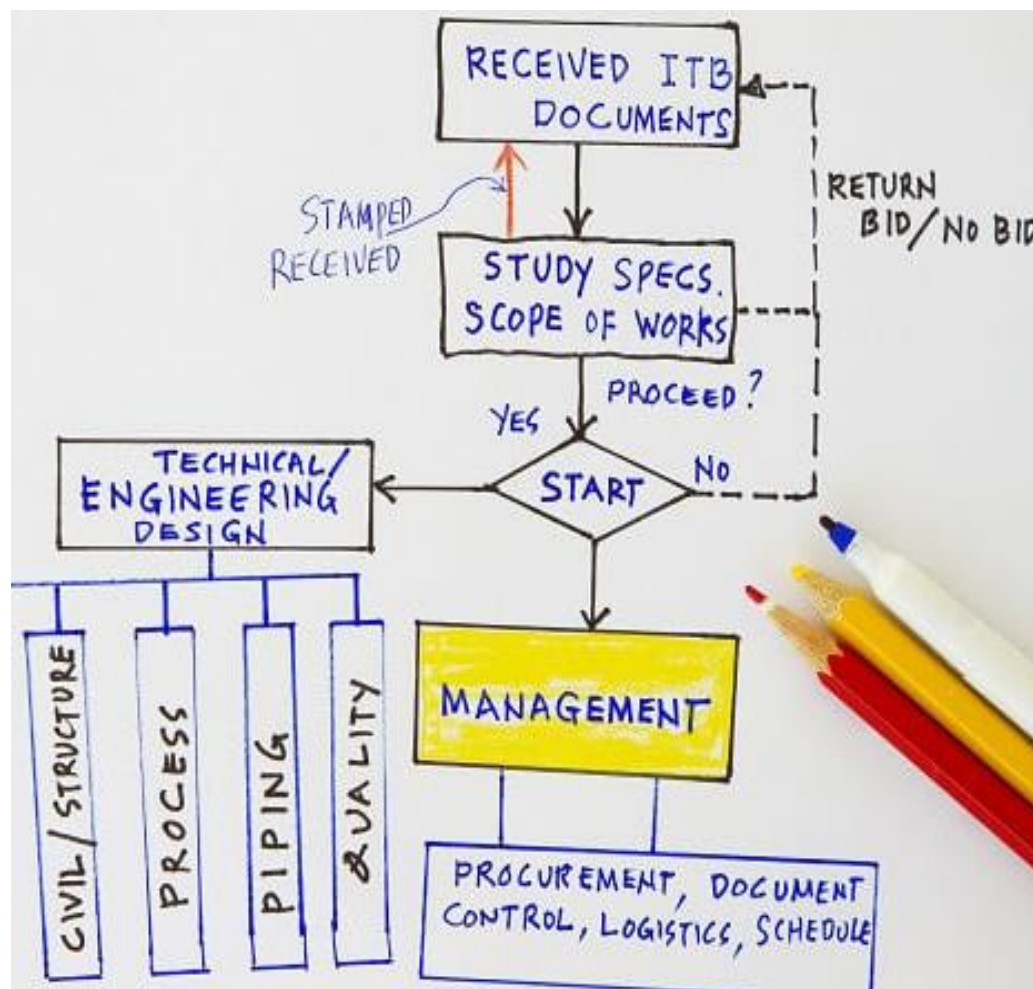 RECEIVED ITB
DOCUMENTS
STAMPED
RECEIVED
RETURN
BID/NO BID
STUDY SPECS.
SCOPE OF WORKS
PROCEED?
YES
NO
START
TECHNICAL/
ENGINEERING
DESIGN
CIVIL/STRUCTURE
PROCESS
PIPING
QUALITY
MANAGEMENT
PROCUREMENT, DOCUMENT
CONTROL, LOGISTICS, SCHEDULE